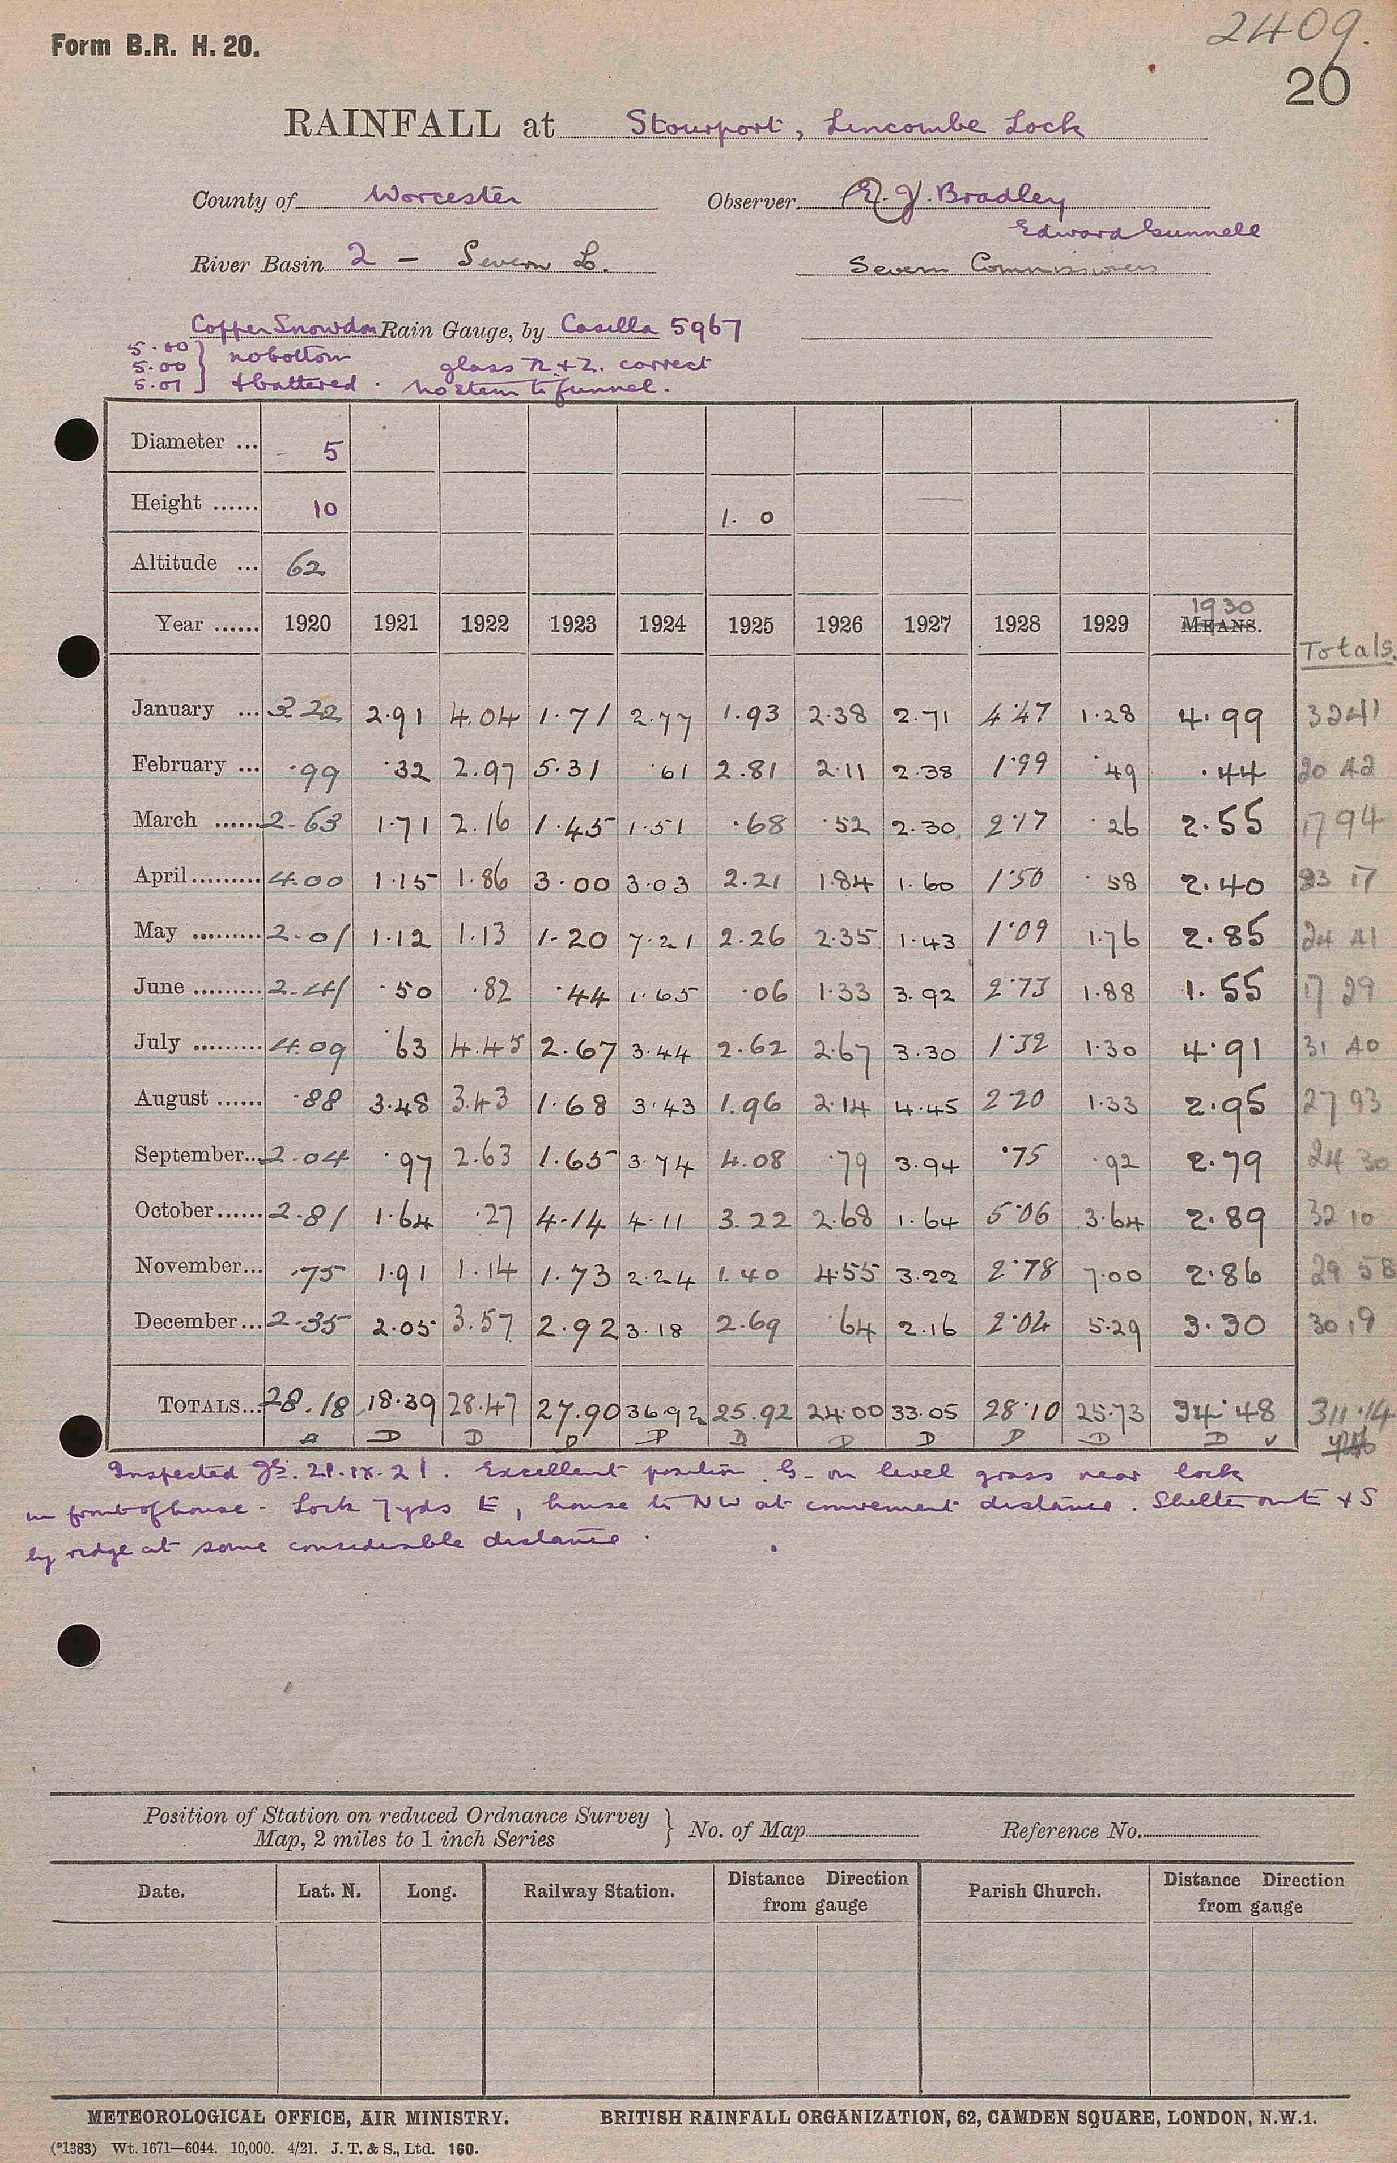 2409.
Form B.R. H. 20.
20
RAINFALL at Stourport, Lincombe Lock
County of Worcester Observer E. J. Bradley
Edward Gunnell
River Basin 2 - Severn L. Severn Commissioners
Copper Snowdon Rain Gauge, by Casella 5967
5.00 } no bottom glass n + z. correct
5.00
5.01 & battered. No stem to funnel.
Diameter ... 5
Height ...... 10 1. 0
Altitude ... 62
Year ...... 1920 1921 1922 1923 1924 1925 1926 1927 1928 1929 1930 MEANS. Totals.
January ... 3.22 2.91 4.04 1.71 2.77 1.93 2.38 2.71 4.47 1.28 4.99 3241
February ... .99 .32 2.97 5.31 .61 2.81 2.11 2.38 1.99 .49 .44 20 42
March ...... 2.63 1.71 2.16 1.45 1.51 .68 .52 2.30 2.17 .26 2.55 17 94
April ......... 4.00 1.15 1.86 3.00 3.03 2.21 1.84 1.60 1.50 .58 2.40 23 17
May ......... 2.01 1.12 1.13 1.20 7.21 2.26 2.35 1.43 1.09 1.76 2.85 24 41
June ......... 2.41 .50 .82 .44 1.65 .06 1.33 3.92 2.73 1.88 1.55 17 29
July ......... 4.09 .63 4.45 2.67 3.44 2.62 2.67 3.30 1.32 1.30 4.91 31 40
August ...... .88 3.48 3.43 1.68 3.43 1.96 2.14 4.45 2.20 1.33 2.95 27 93
September... 2.04 .97 2.63 1.65 3.74 4.08 .79 3.94 .75 .92 2.79 24 30
October ...... 2.81 1.64 .27 4.14 4.11 3.22 2.68 1.64 5.06 3.64 2.89 32 10
November... .75 1.91 1.14 1.73 2.24 1.40 4.55 3.22 2.78 7.00 2.86 29 58
December ... 2.35 2.05 3.57 2.92 3.18 2.69 .64 2.16 2.04 5.29 3.30 30 19
TOTALS... 28.18 18.39 28.47 27.90 36.92 25.92 24.00 33.05 28.10 25.73 34.48 311.14
D D D D D D D D D D D v
Inspected 21.ix.21. Excellent position. G. on level grass near lock
in front of house. Lock 7 yds E, house to NW at convenient distance. Shelter on E & S
by ridge at some considerable distance.
Position of Station on reduced Ordnance Survey Map, 2 miles to 1 inch Series } No. of Map Reference No.
Date. Lat. N. Long. Railway Station. Distance Direction from gauge Parish Church. Distance Direction from gauge
METEOROLOGICAL OFFICE, AIR MINISTRY. BRITISH RAINFALL ORGANIZATION, 62, CAMDEN SQUARE, LONDON, N.W.1.
(*1383) Wt. 1671—6044. 10,000. 4/21. J. T. & S., Ltd. 160.